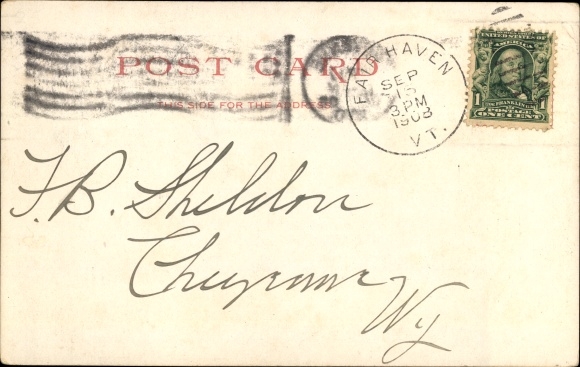 POST CARD
THIS SIDE FOR THE ADDRESS
FAIR HAVEN
SEP
15
3 PM
1903
VT.
UNITED STATES OF
AMERICA
1 1
FRANKLIN
POSTAGE
ONE CENT
F. B. Sheldon
Cheyenne
Wy